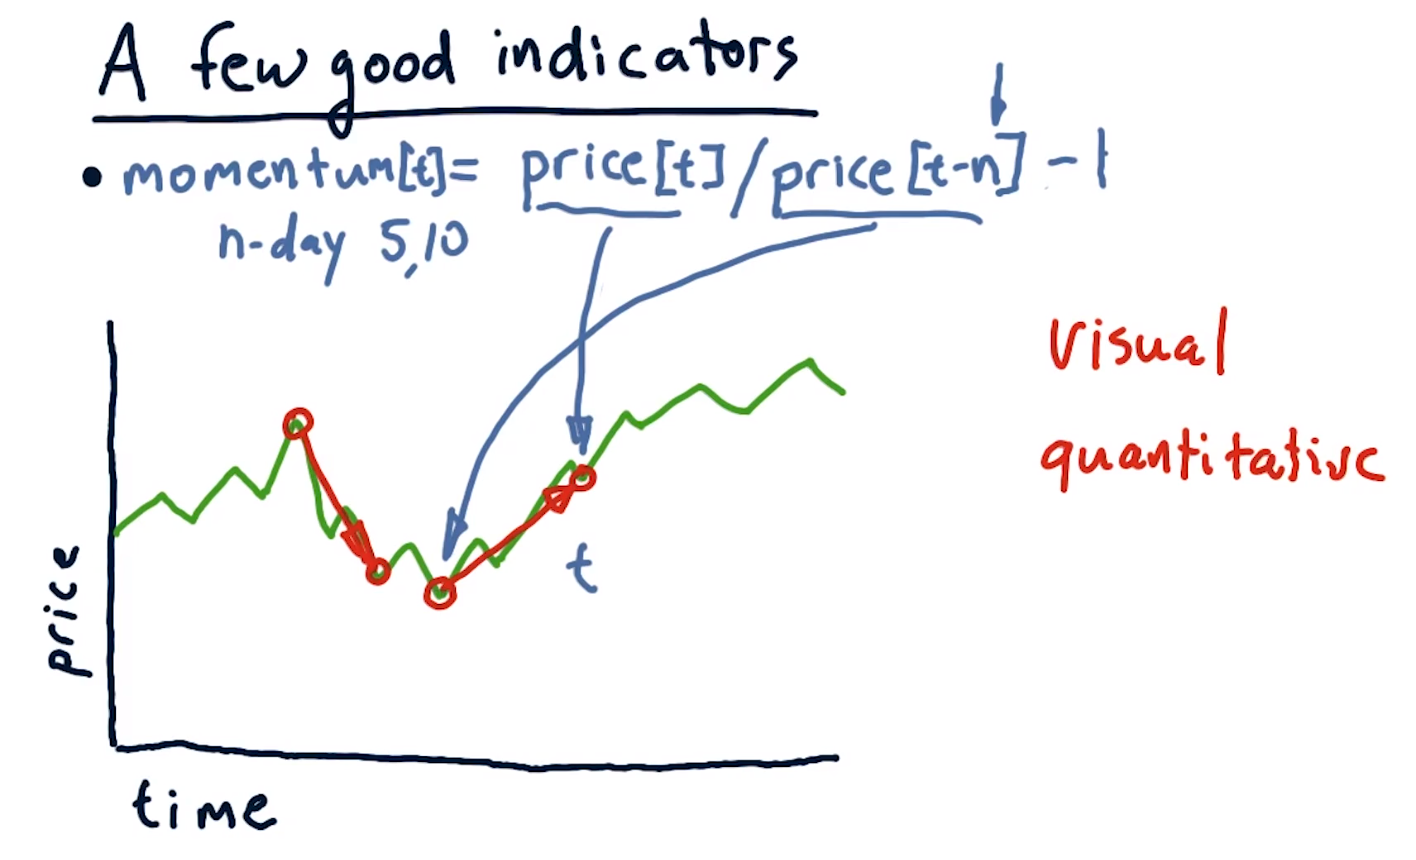 A few good indicators
• momentum[t]= price[t]/price[t-n] -1
n-day 5,10
visual
quantitative
t
price
time